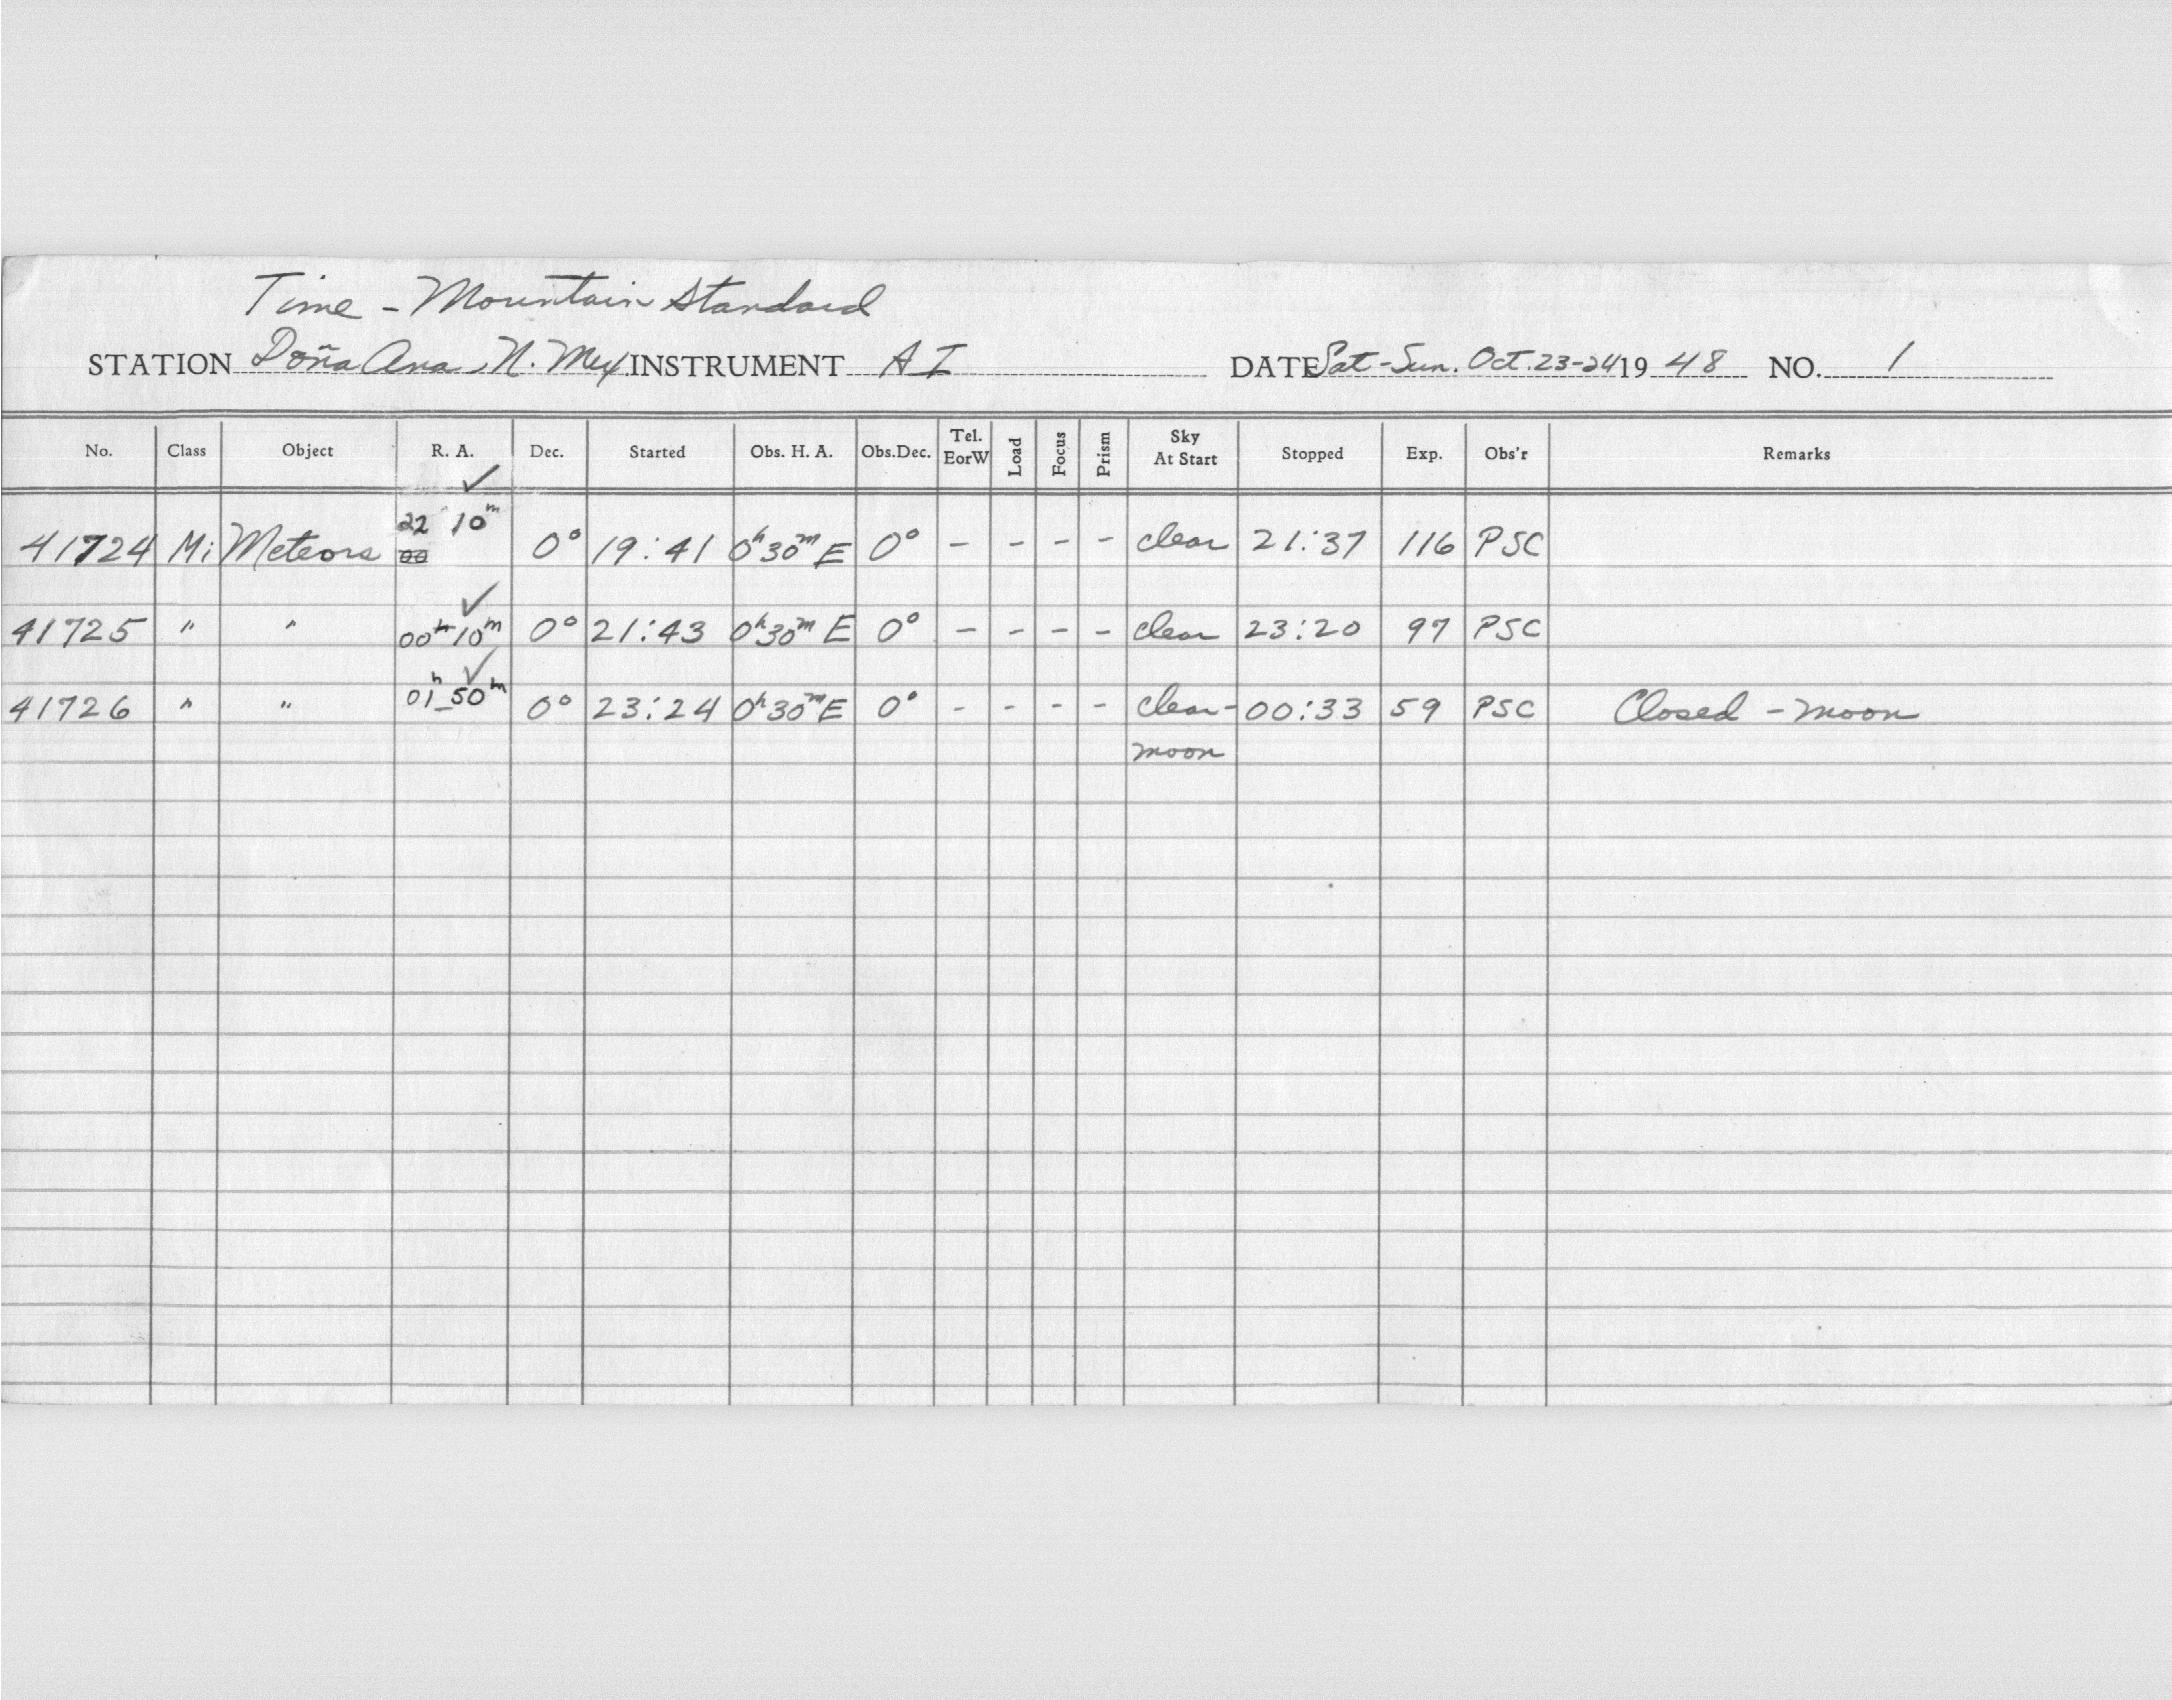 Time - Mountain Standard
STATION Doña Ana, N. Mex. INSTRUMENT AI DATE Sat-Sun. Oct. 23-24 19 48 NO. 1
No. Class Object R. A. Dec. Started Obs. H. A. Obs.Dec. Tel. EorW Load Focus Prism Sky At Start Stopped Exp. Obs'r Remarks
✓
22 10m
41724 Mi Meteors 00 0° 19:41 0h30m E 0° - - - - clear 21:37 116 PSC
✓
41725 " " 00h 10m 0° 21:43 0h30m E 0° - - - - clear 23:20 97 PSC
✓
41726 " " 01h 50m 0° 23:24 0h30m E 0° - - - - clear- 00:33 59 PSC Closed - moon
moon